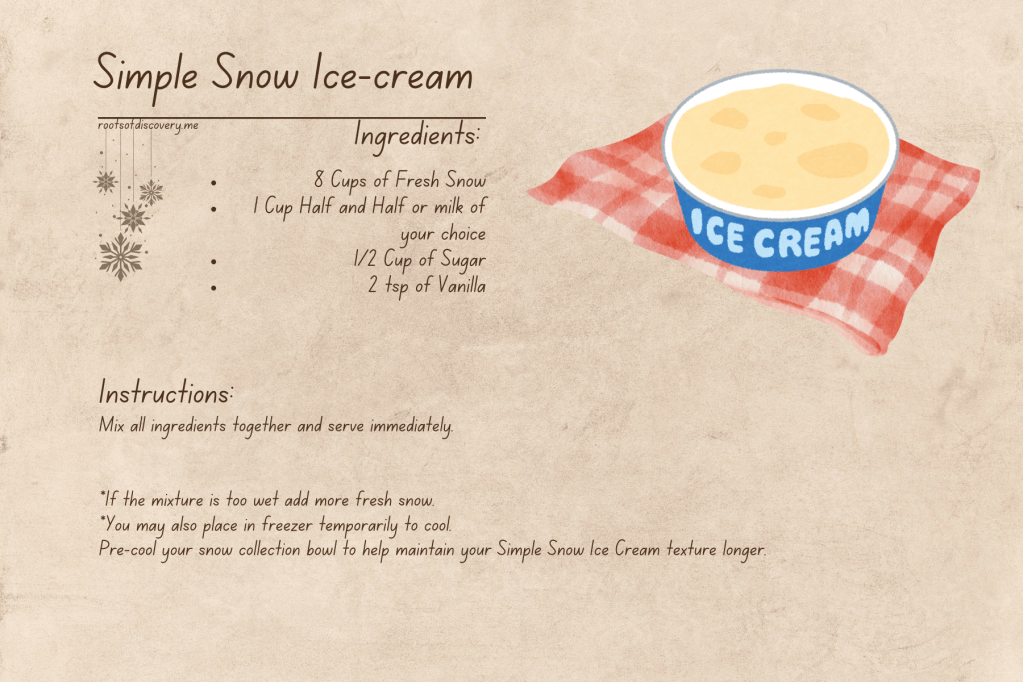 Simple Snow Ice-cream
rootsofdiscovery.me
Ingredients:
• 8 Cups of Fresh Snow
• 1 Cup Half and Half or milk of
your choice
• 1/2 Cup of Sugar
• 2 tsp of Vanilla
ICE CREAM
Instructions:
Mix all ingredients together and serve immediately.
*If the mixture is too wet add more fresh snow.
*You may also place in freezer temporarily to cool.
Pre-cool your snow collection bowl to help maintain your Simple Snow Ice Cream texture longer.